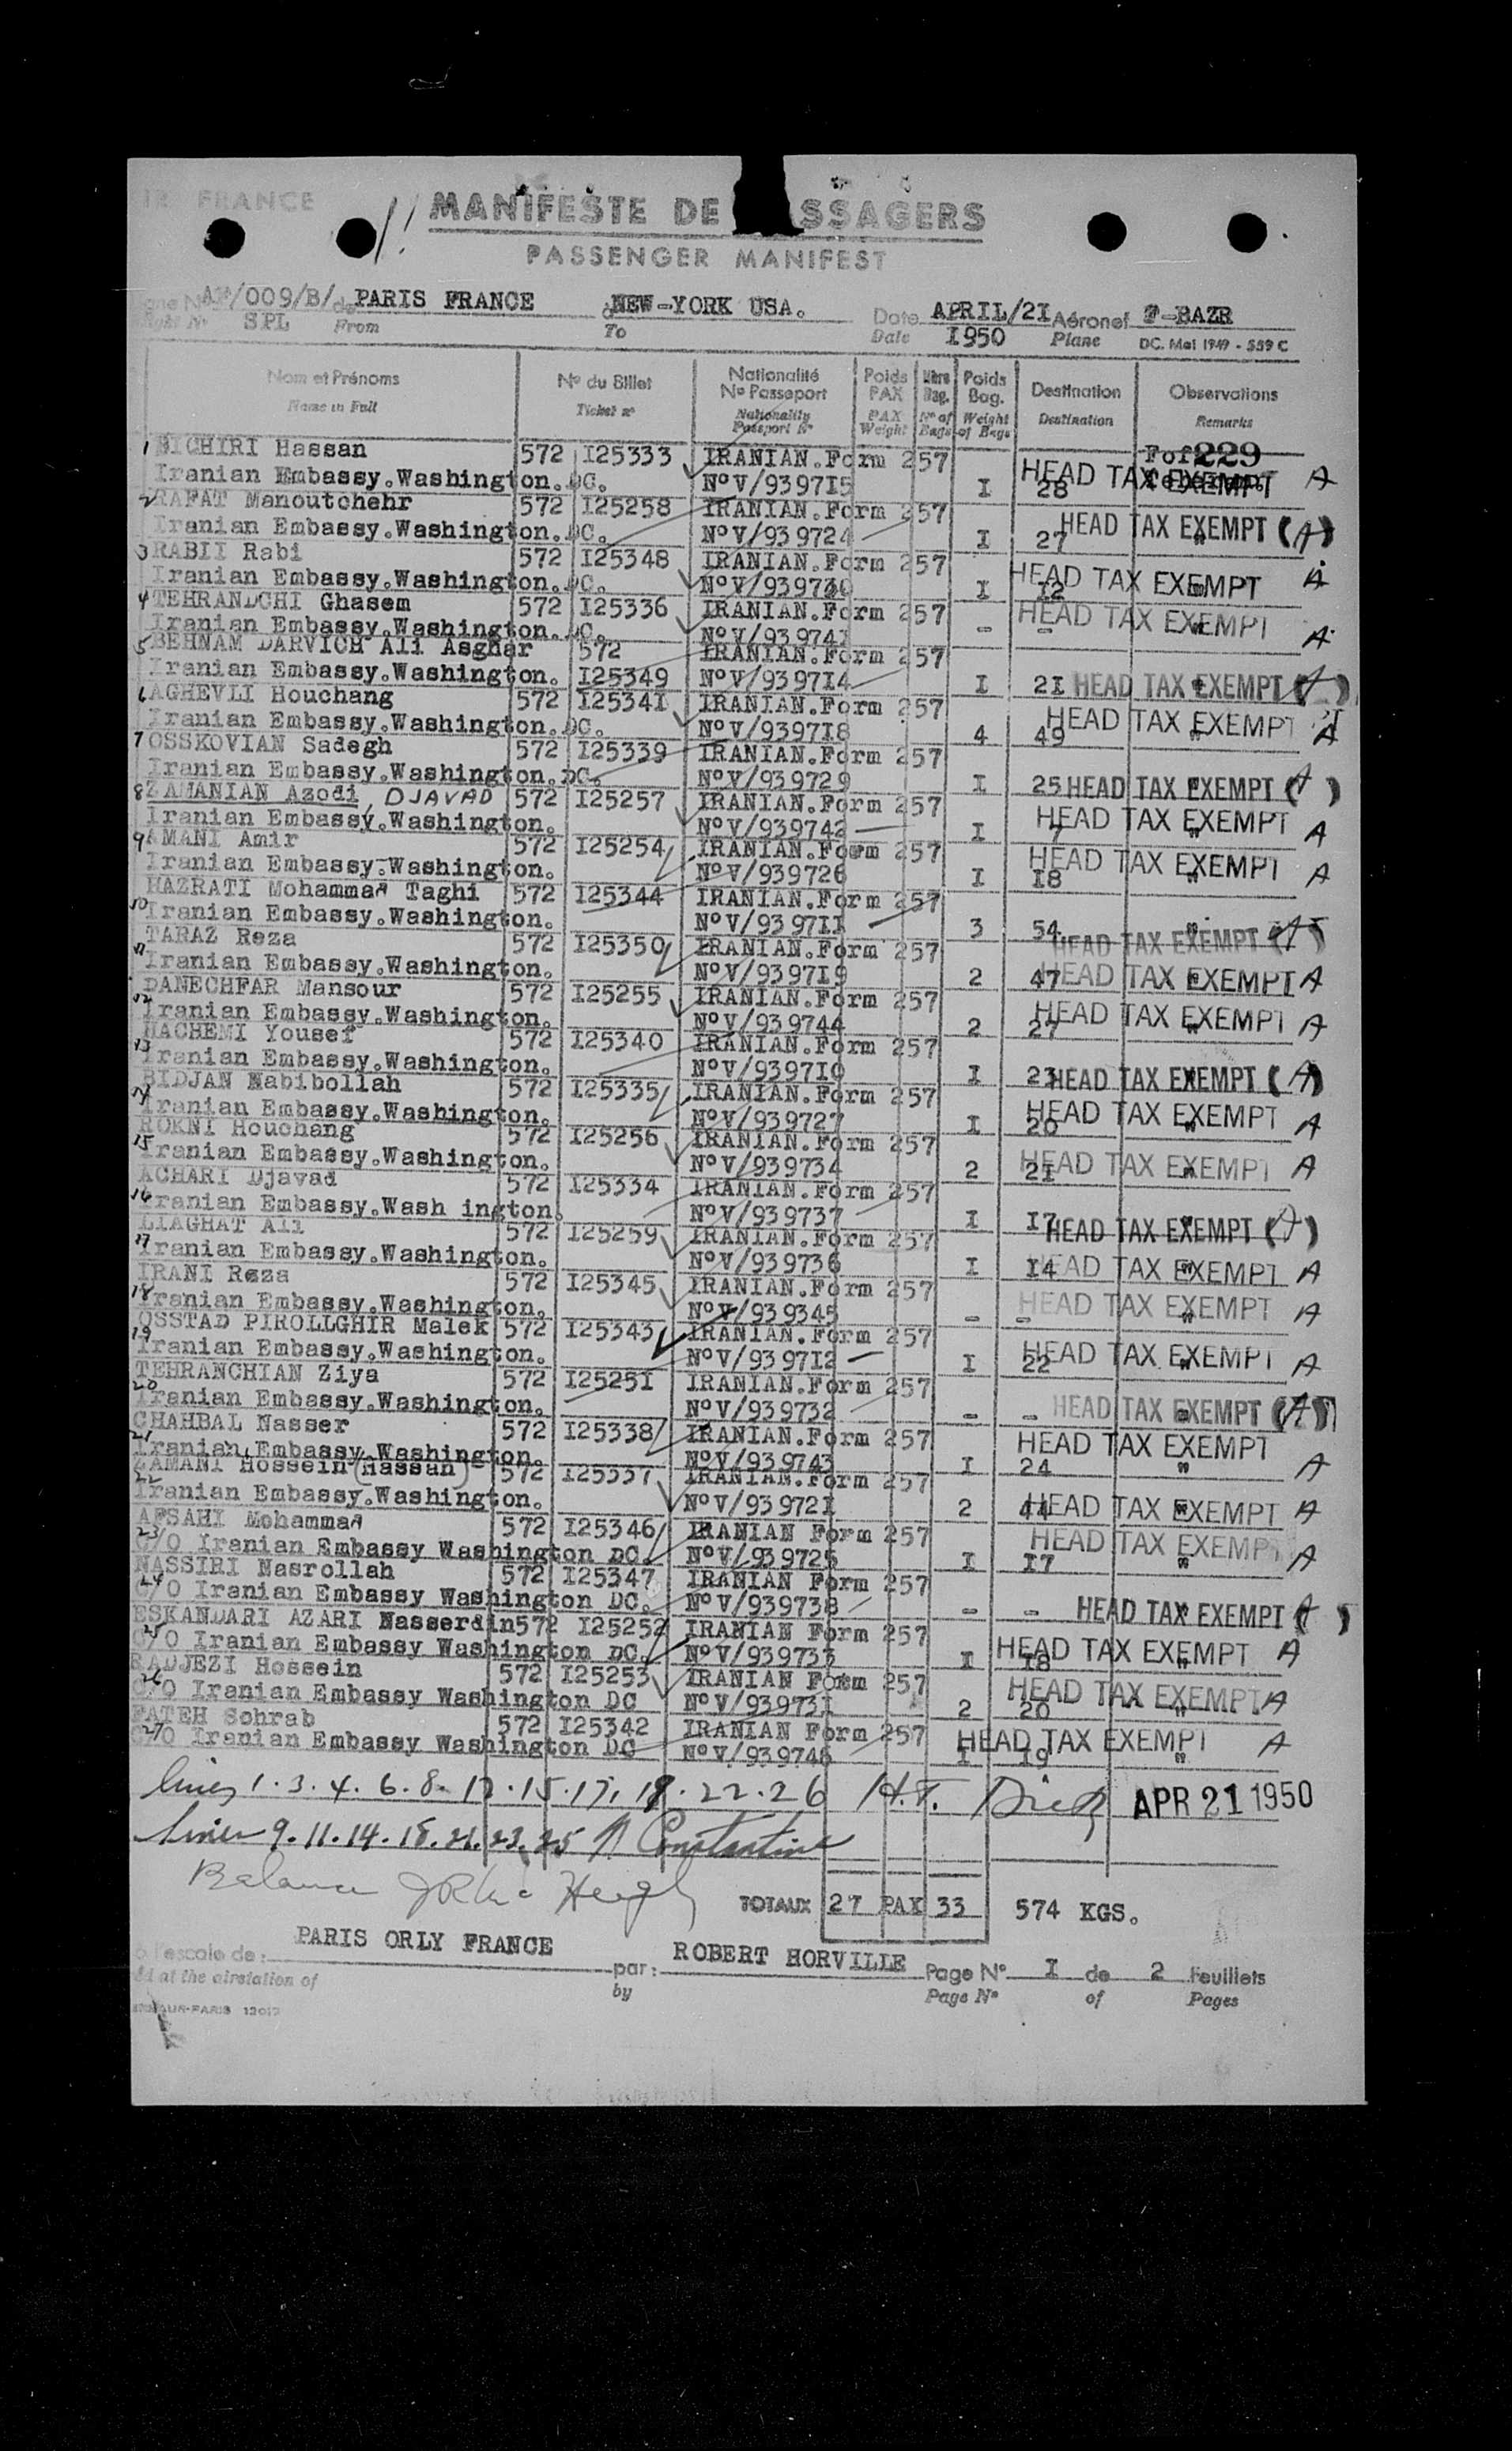 IR FRANCE
MANIFESTE DE SSAGERS
PASSENGER MANIFEST
AF/009/B/ de PARIS FRANCE à NEW-YORK USA. Date APRIL/2I Aéronef F-BAZR
SPL From To Date I950 Plane DC. Mai 1949 - 559 C
Nom et Prénoms N° du Billet Nationalité Poids Nbre Poids Destination Observations
N° Passeport PAX Bag. Bag.
Name in Full Ticket n° Nationality PAX N° of Weight Destination Remarks
Passport N° Weight Bags of Bags
1 BICHIRI Hassan 572 I25333 IRANIAN.Form 257 For 229
Iranian Embassy.Washington.DC. N°V/939715 I 28 HEAD TAX EXEMPT A
2 RAFAT Manoutchehr 572 I25258 IRANIAN.Form 257
Iranian Embassy.Washington.DC. N°V/939724 I 27 HEAD TAX EXEMPT (A)
3 RABII Rabi 572 I25348 IRANIAN.Form 257
Iranian Embassy.Washington.DC. N°V/939730 I I2 HEAD TAX EXEMPT A
4 TEHRANDCHI Ghasem 572 I25336 IRANIAN.Form 257
Iranian Embassy.Washington.DC. N°V/93974I - - HEAD TAX EXEMPT A
5 BEHNAM DARVICH Ali Asghar 572 IRANIAN.Form 257
Iranian Embassy.Washington. I25349 N°V/9397I4 I 2I HEAD TAX EXEMPT (A)
6 AGHEVLI Houchang 572 I2534I IRANIAN.Form 257
Iranian Embassy.Washington.DC. N°V/9397I8 4 49 HEAD TAX EXEMPT A
7 OSSKOVIAN Sadegh 572 I25339 IRANIAN.Form 257
Iranian Embassy.Washington.DC. N°V/939729 I 25 HEAD TAX EXEMPT (A)
8 ZAMANIAN Azodi, DJAVAD 572 I25257 IRANIAN.Form 257
Iranian Embassy.Washington. N°V/939742 I 7 HEAD TAX EXEMPT A
9 AMANI Amir 572 I25254 IRANIAN.Form 257
Iranian Embassy.Washington. N°V/939726 I I8 HEAD TAX EXEMPT A
HAZRATI Mohammad Taghi 572 I25344 IRANIAN.Form 257
10 Iranian Embassy.Washington. N°V/9397II 3 54 HEAD TAX EXEMPT (A)
TARAZ Reza 572 I25350 IRANIAN.Form 257
11 Iranian Embassy.Washington. N°V/9397I9 2 47 HEAD TAX EXEMPT A
DANECHFAR Mansour 572 I25255 IRANIAN.Form 257
12 Iranian Embassy.Washington. N°V/939744 2 27 HEAD TAX EXEMPT A
HACHEMI Yousef 572 I25340 IRANIAN.Form 257
13 Iranian Embassy.Washington. N°V/9397I0 I 23 HEAD TAX EXEMPT (A)
BIDJAN Nabibollah 572 I25335 IRANIAN.Form 257
14 Iranian Embassy.Washington. N°V/939727 I 20 HEAD TAX EXEMPT A
ROKNI Houchang 572 I25256 IRANIAN.Form 257
15 Iranian Embassy.Washington. N°V/939734 2 2I HEAD TAX EXEMPT A
ACHARI Djavad 572 I25334 IRANIAN.Form 257
16 Iranian Embassy.Wash ington. N°V/939737 I I7 HEAD TAX EXEMPT (A)
LIAGHAT Ali 572 I25259 IRANIAN.Form 257
17 Iranian Embassy.Washington. N°V/939736 I I4 HEAD TAX EXEMPT A
IRANI Reza 572 I25345 IRANIAN.Form 257
18 Iranian Embassy.Washington. N°V/939345 - - HEAD TAX EXEMPT A
OSSTAD PIROLLGHIR Malek 572 I25343 IRANIAN.Form 257
19 Iranian Embassy.Washington. N°V/9397I2 I 22 HEAD TAX EXEMPT A
TEHRANCHIAN Ziya 572 I2525I IRANIAN.Form 257
20 Iranian Embassy.Washington. N°V/939732 - - HEAD TAX EXEMPT (A)
CHAHBAL Nasser 572 I25338 IRANIAN.Form 257
21 Iranian Embassy.Washington. N°V/939743 I 24 HEAD TAX EXEMPT A
ZAMANI Hossein (Hassan) 572 I25337 IRANIAN.Form 257
22 Iranian Embassy.Washington. N°V/93972I 2 44 HEAD TAX EXEMPT A
AFSAHI Mohammad 572 I25346 IRANIAN Form 257
23 C/O Iranian Embassy Washington DC. N°V/939725 I I7 HEAD TAX EXEMPT A
NASSIRI Nasrollah 572 I25347 IRANIAN Form 257
24 C/O Iranian Embassy Washington DC. N°V/939738 - - HEAD TAX EXEMPT (A)
ESKANDARI AZARI Nasserdin 572 I25252 IRANIAN Form 257
25 C/O Iranian Embassy Washington DC. N°V/939733 I I8 HEAD TAX EXEMPT A
RADJEZI Hossein 572 I25253 IRANIAN Form 257
26 C/O Iranian Embassy Washington DC N°V/93973I 2 20 HEAD TAX EXEMPT A
FATEH Sohrab 572 I25342 IRANIAN Form 257
27 C/O Iranian Embassy Washington DC N°V/939746 I I9 HEAD TAX EXEMPT A
lines 1.3.4.6.8.12.15.17.19.22.26 H.T. APR 21 1950
lines 9.11.14.18.21.23.25 Constantine
Balance
TOTAUX 27 PAX 33 574 KGS.
l'escale de: PARIS ORLY FRANCE par: ROBERT HORVILLE Page N° I de 2 Feuillets
at the airstation of by Page N° of Pages